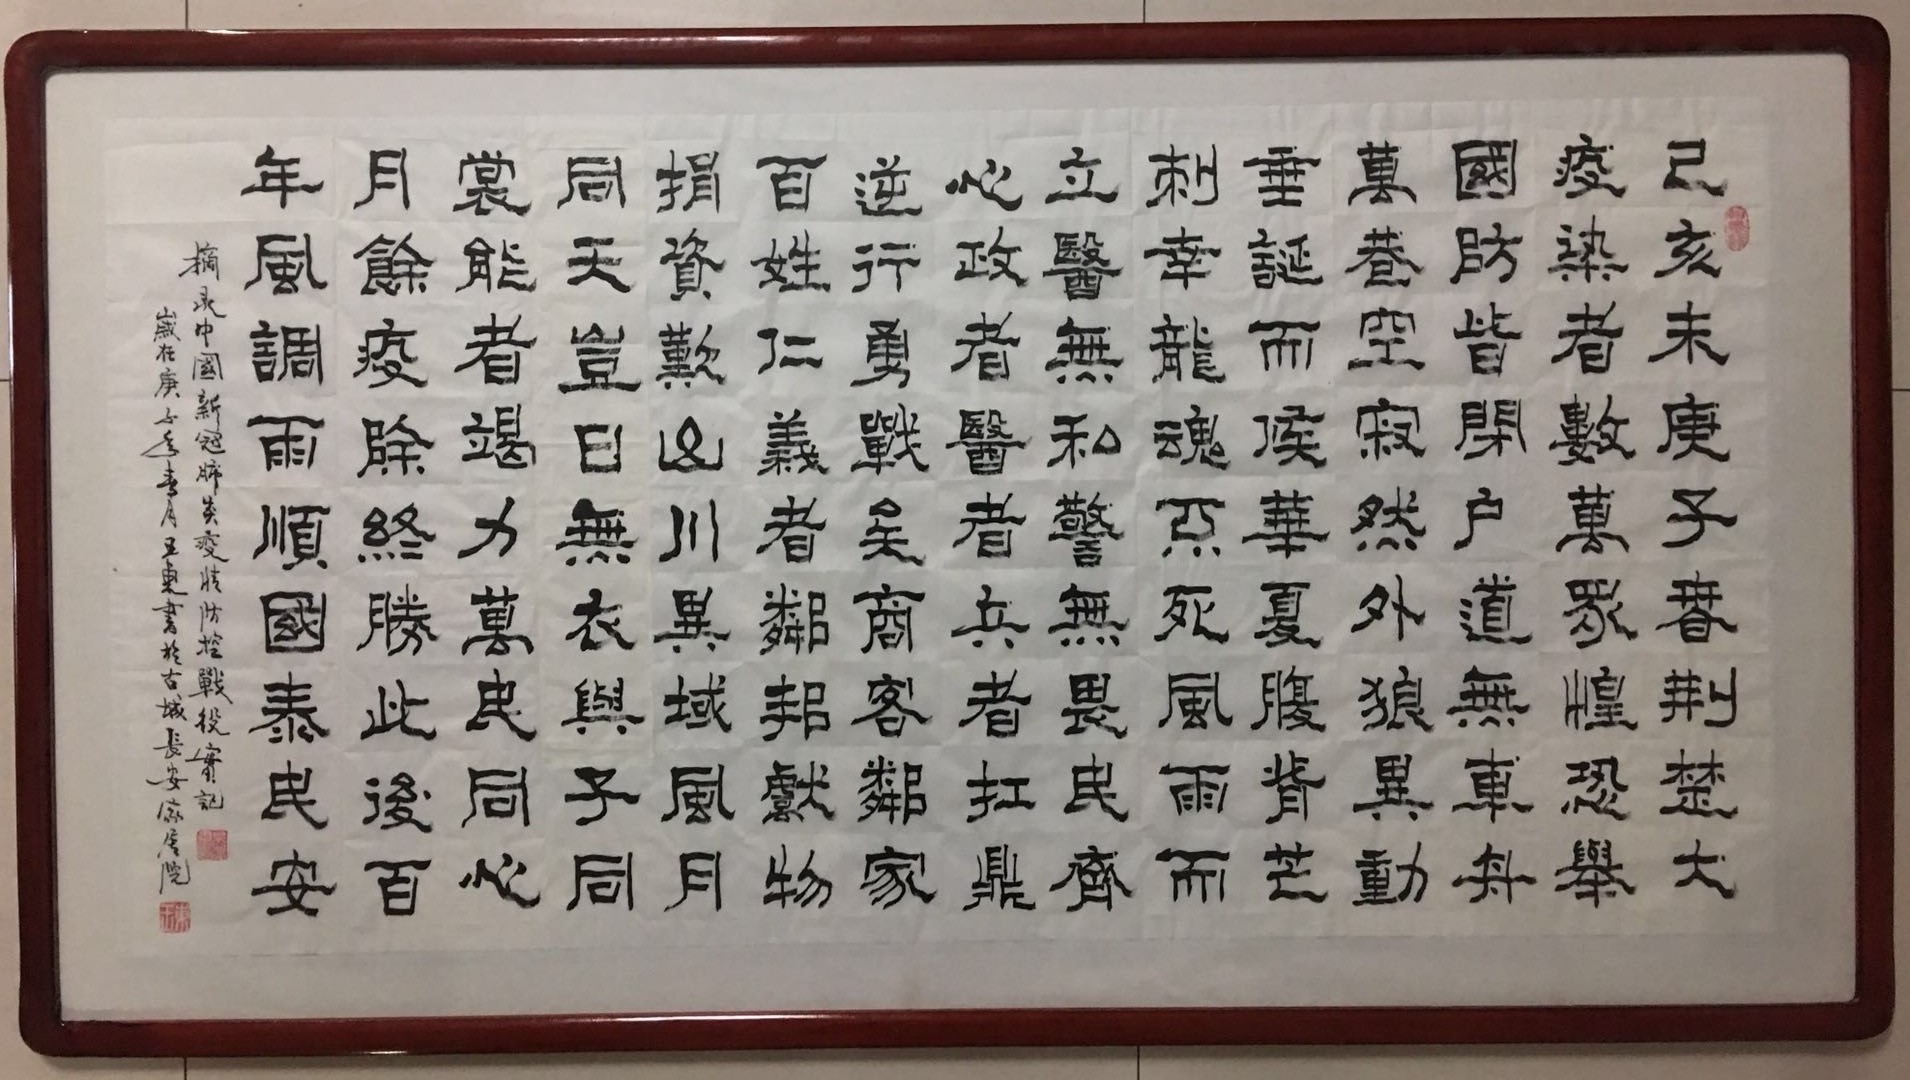 己亥末庚子春荆楚大
疫染者數萬眾惶恐舉
國防皆閉户道無車舟
萬巷空寂然外狼異動
垂誕而侯華夏腹背芒
刺幸龍魂不死風雨而
立醫無私警無畏民齊
心政者醫者兵者扛鼎
逆行勇戰矣商客鄰家
百姓仁義者鄰邦獻物
捐資歎山川異域風月
同天豈曰無衣與子同
裳能者竭力萬民同心
月餘疫除終勝此後百
年風調雨順國泰民安
摘录中國新冠肺炎疫情防控戰役實記
歲在庚子年春月 書於古城長安 居院